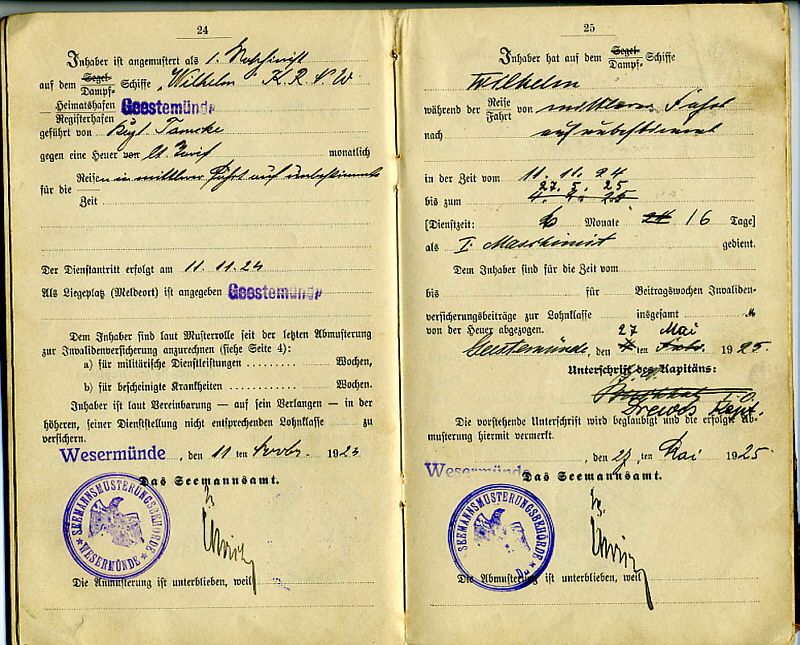 24
Inhaber ist angemustert als 1. Maschinist
auf dem Segel- Dampf- Schiffe „Wilhelm“ K. R. S. W
Heimatshafen
Registerhafen Geestemünde
geführt von Kapt. Tamcke
gegen eine Heuer von lt. Tarif monatlich
für die Reisen in mittlerer Fahrt auf unbestimmte
Zeit
Der Dienstantritt erfolgt am 11. 11. 24
Als Liegeplatz (Meldeort) ist angegeben Geestemünde
Dem Inhaber sind laut Musterrolle seit der letzten Abmusterung
zur Invalidenversicherung anzurechnen (siehe Seite 4):
a) für militärische Dienstleistungen Wochen,
b) für bescheinigte Krankheiten Wochen.
Inhaber ist laut Vereinbarung — auf sein Verlangen — in der
höheren, seiner Dienststellung nicht entsprechenden Lohnklasse zu
versichern.
Wesermünde, den 11 ten Novbr. 192
Das Seemannsamt.
SEEMANNSMUSTERUNGSBEHÖRDE
WESERMÜNDE
Die Anmusterung ist unterblieben, weil
25
Inhaber hat auf dem Segel- Dampf- Schiffe
Wilhelm
während der Reise Fahrt von mittlerer Fahrt
nach auf unbestimmt
in der Zeit vom 11. 11. 24
27. 5. 25
bis zum
[Dienstzeit: 6 Monate 16 Tage]
als I. Maschinist gedient.
Dem Inhaber sind für die Zeit vom
bis für Beitragswochen Invaliden-
versicherungsbeiträge zur Lohnklasse insgesamt M
von der Heuer abgezogen.
27 Mai
Geestemünde, den ten Febr. 1925.
Unterschrift des Kapitäns:
Drewes Kapt.
Die vorstehende Unterschrift wird beglaubigt und die erfolgte Ab-
musterung hiermit vermerkt.
Wesermünde, den 27 ten Mai 1925.
Das Seemannsamt.
SEEMANNSMUSTERUNGSBEHÖRDE
Die Abmusterung ist unterblieben, weil